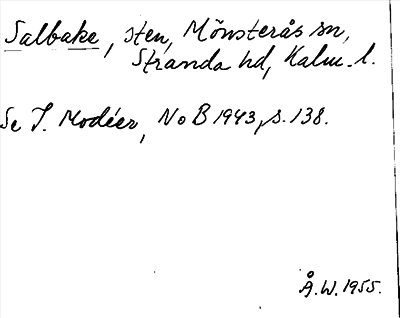 Salbake, sten, Mönsterås sn,
Stranda hd, Kalm. l.
Se I. Modéer, NoB 1943, s. 138.
Å.W. 1955.